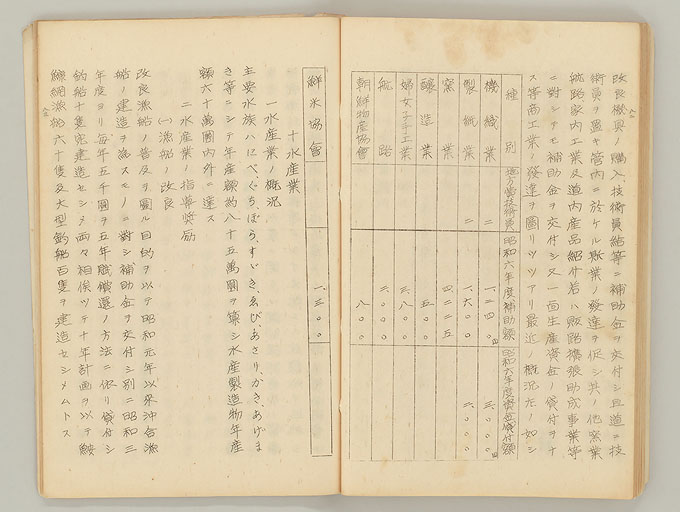 改良機具ノ購入、技術員給等ニ補助金ヲ交付シ且道ニ技
術員ヲ置キ管内ニ於ケル斯業ノ発達ヲ促シ其ノ他窯業
航路、家内工業及道内産品紹介若ハ販路擴張助成事業等
ニ對シテモ補助金ヲ交付シ又一面生産資金ノ貸付ヲナ
ス等商工業ノ發達ヲ圖リツツアリ最近ノ概況左ノ如シ
種別 地方費技術員 昭和六年度補助額 昭和六年度資金貸付額
機織業 二 一、二四〇 三、〇〇〇
製紙業 二 一、六〇〇 二、〇〇〇
窯業 四、二二五
醸造業 五〇
婦女子手工業 二、八〇〇
航路 三、〇〇〇
朝鮮物産協會 八〇〇
鮮米協會 一、三〇〇
十 水産業
一 水産業ノ概況
主要水族ハにべ、ぐち、ぼら、すゞき、ゑび、あさり、かき、あげま
き等ニシテ年産額約八十五萬圓ヲ算シ水産製造物年産
額六十萬圓内外ニ達ス
二 水産業ノ指導奨励
(一)漁船ノ改良
改良漁船ノ普及ヲ圖ル目的ヲ以テ昭和元年以來沖合漁
船ノ建造ヲ為スモノニ對シ補助金ヲ交付シ別ニ昭和三
年度ヨリ毎年五千圓ヲ五年賦償還ノ方法ニ依リ貸付シ
釣船十隻宛建造セシメ両々相俟ツテ十年計画ヲ以テ鮟
鱇網漁船六十隻及大型釣船百隻ヲ建造セシメムトス